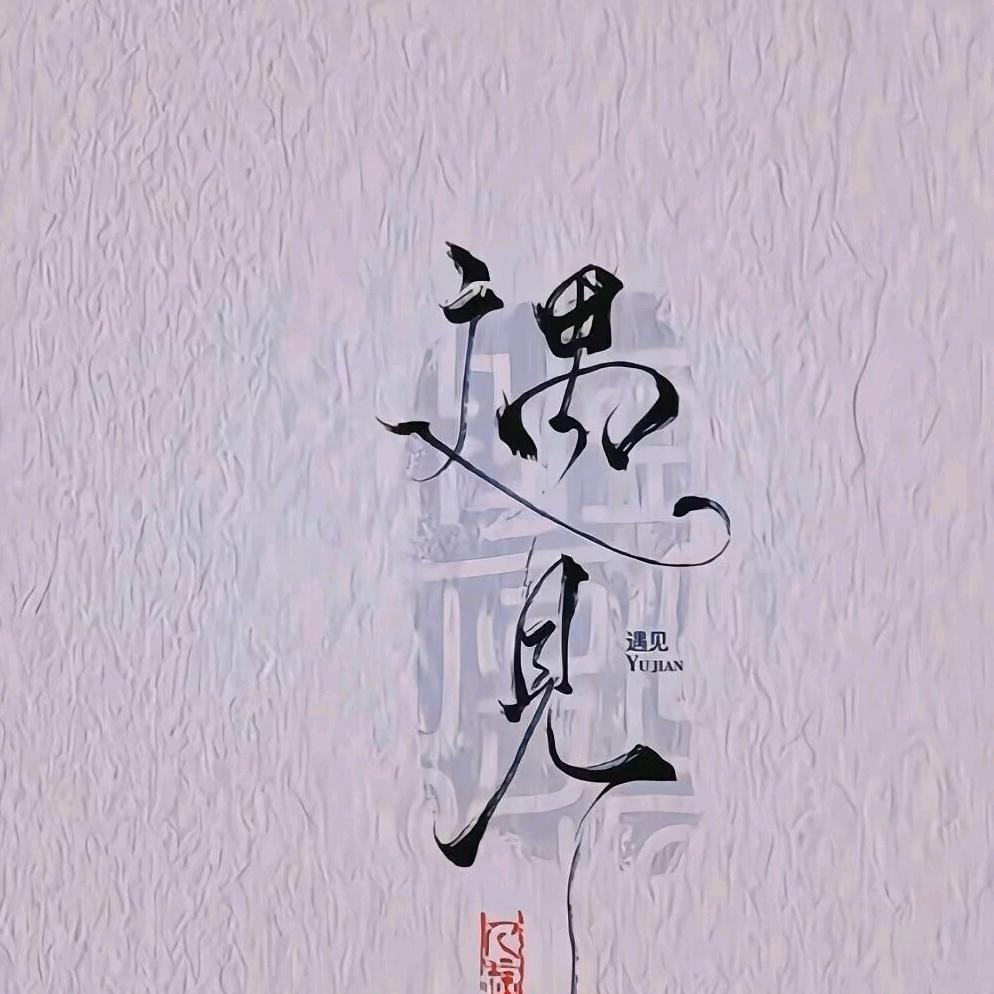 遇見
遇见
YUJIAN